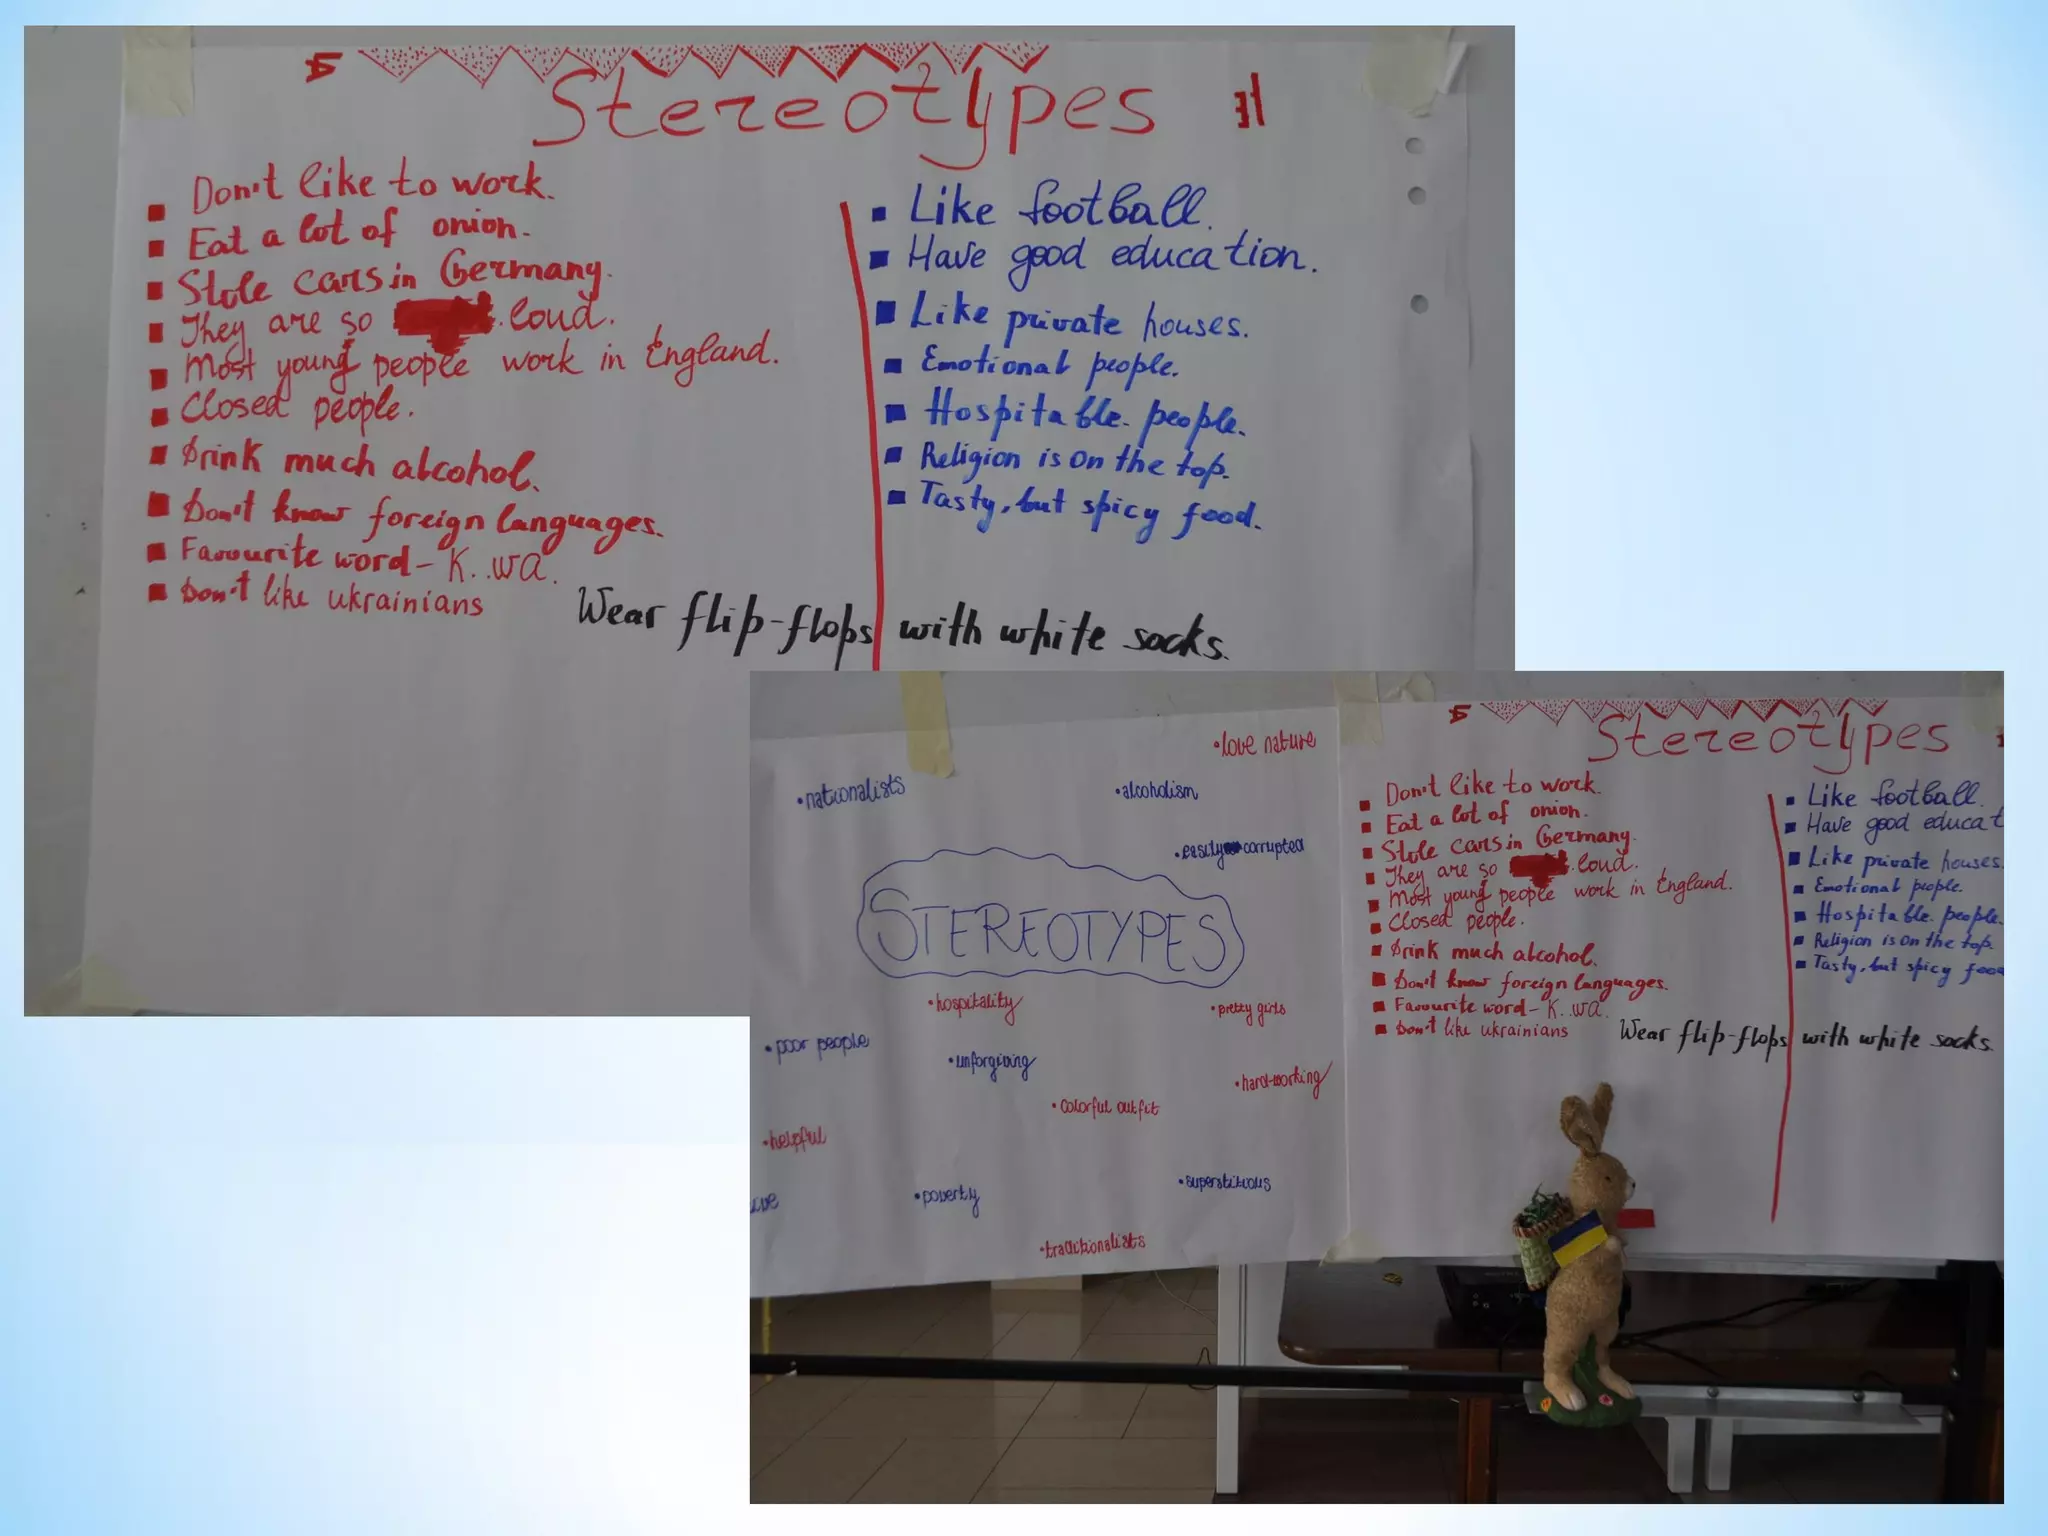 Stereotypes
Don't like to work.
Eat a lot of onion.
Stole cars in Germany.
They are so loud.
Most young people work in England.
Closed people.
Drink much alcohol.
Don't know foreign languages.
Favourite word - K..wa.
Don't like ukrainians
Like football.
Have good education.
Like private houses.
Emotional people.
Hospitable people.
Religion is on the top.
Tasty, but spicy food.
Wear flip-flops with white socks.
love nature
nationalists
alcoholism
easily corrupted
STEREOTYPES
hospitality
pretty girls
poor people
unforgiving
hard-working
colorful outfit
helpful
superstitious
poverty
traditionalists
Stereotypes
Don't like to work.
Eat a lot of onion.
Stole cars in Germany.
They are so loud.
Most young people work in England.
Closed people.
Drink much alcohol.
Don't know foreign languages.
Favourite word - K..wa.
Don't like ukrainians
Like football.
Have good educat
Like private houses.
Emotional people.
Hospitable people.
Religion is on the top.
Tasty, but spicy food
Wear flip-flops with white socks.